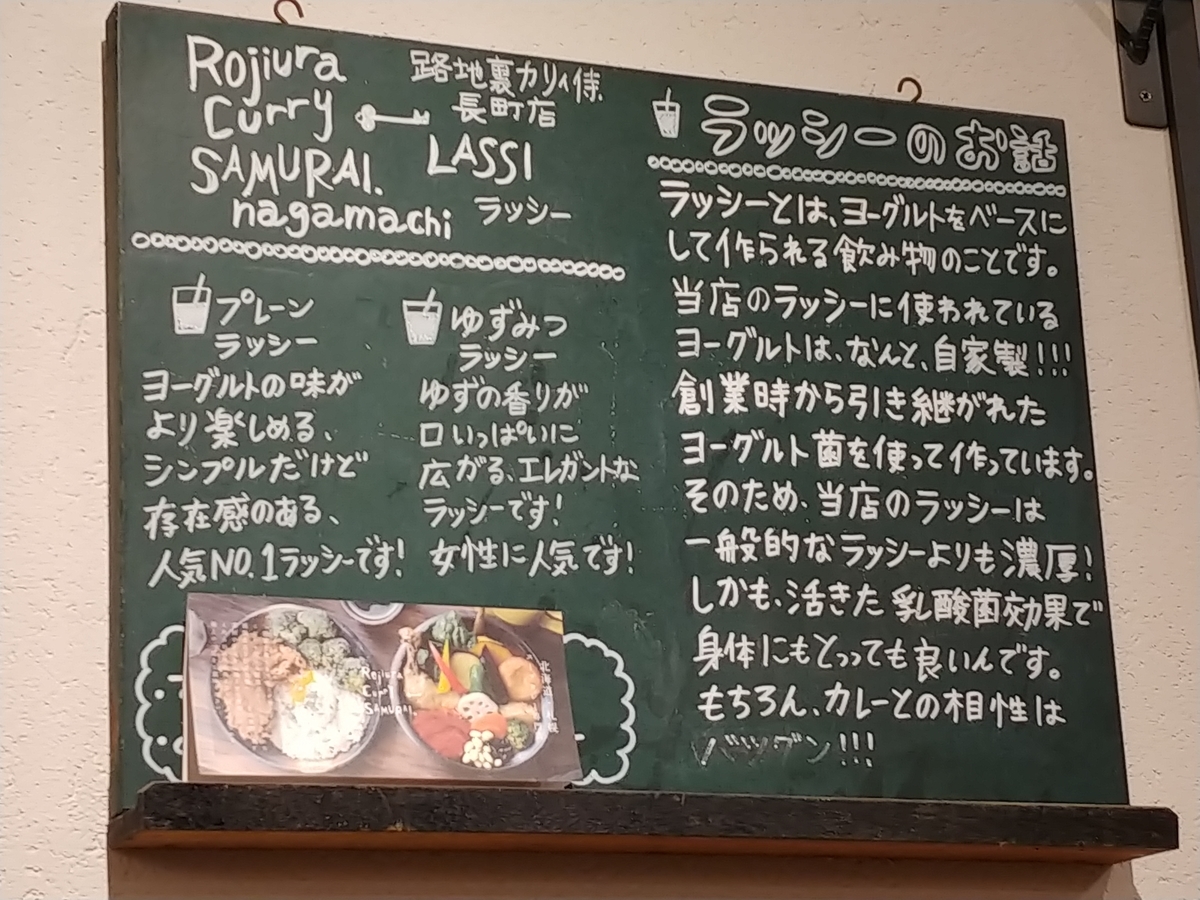 Rojiura
Curry
SAMURAI.
nagamachi
路地裏カリィ侍.
長町店
LASSI
ラッシー
プレーン
ラッシー
ヨーグルトの味が
より楽しめる、
シンプルだけど
存在感のある、
人気NO.1ラッシーです!
ゆずみつ
ラッシー
ゆずの香りが
口いっぱいに
広がる、エレガントな
ラッシーです!
女性に人気です!
ラッシーのお話
ラッシーとは、ヨーグルトをベースに
して作られる飲み物のことです。
当店のラッシーに使われている
ヨーグルトは、なんと、自家製!!!
創業時から引き継がれた
ヨーグルト菌を使って作っています。
そのため、当店のラッシーは
一般的なラッシーよりも濃厚!
しかも、活きた乳酸菌効果で
身体にもとっっても良いんです。
もちろん、カレーとの相性は
バツグン!!!
Rojiura
Curry
SAMURAI.
北海道
札幌